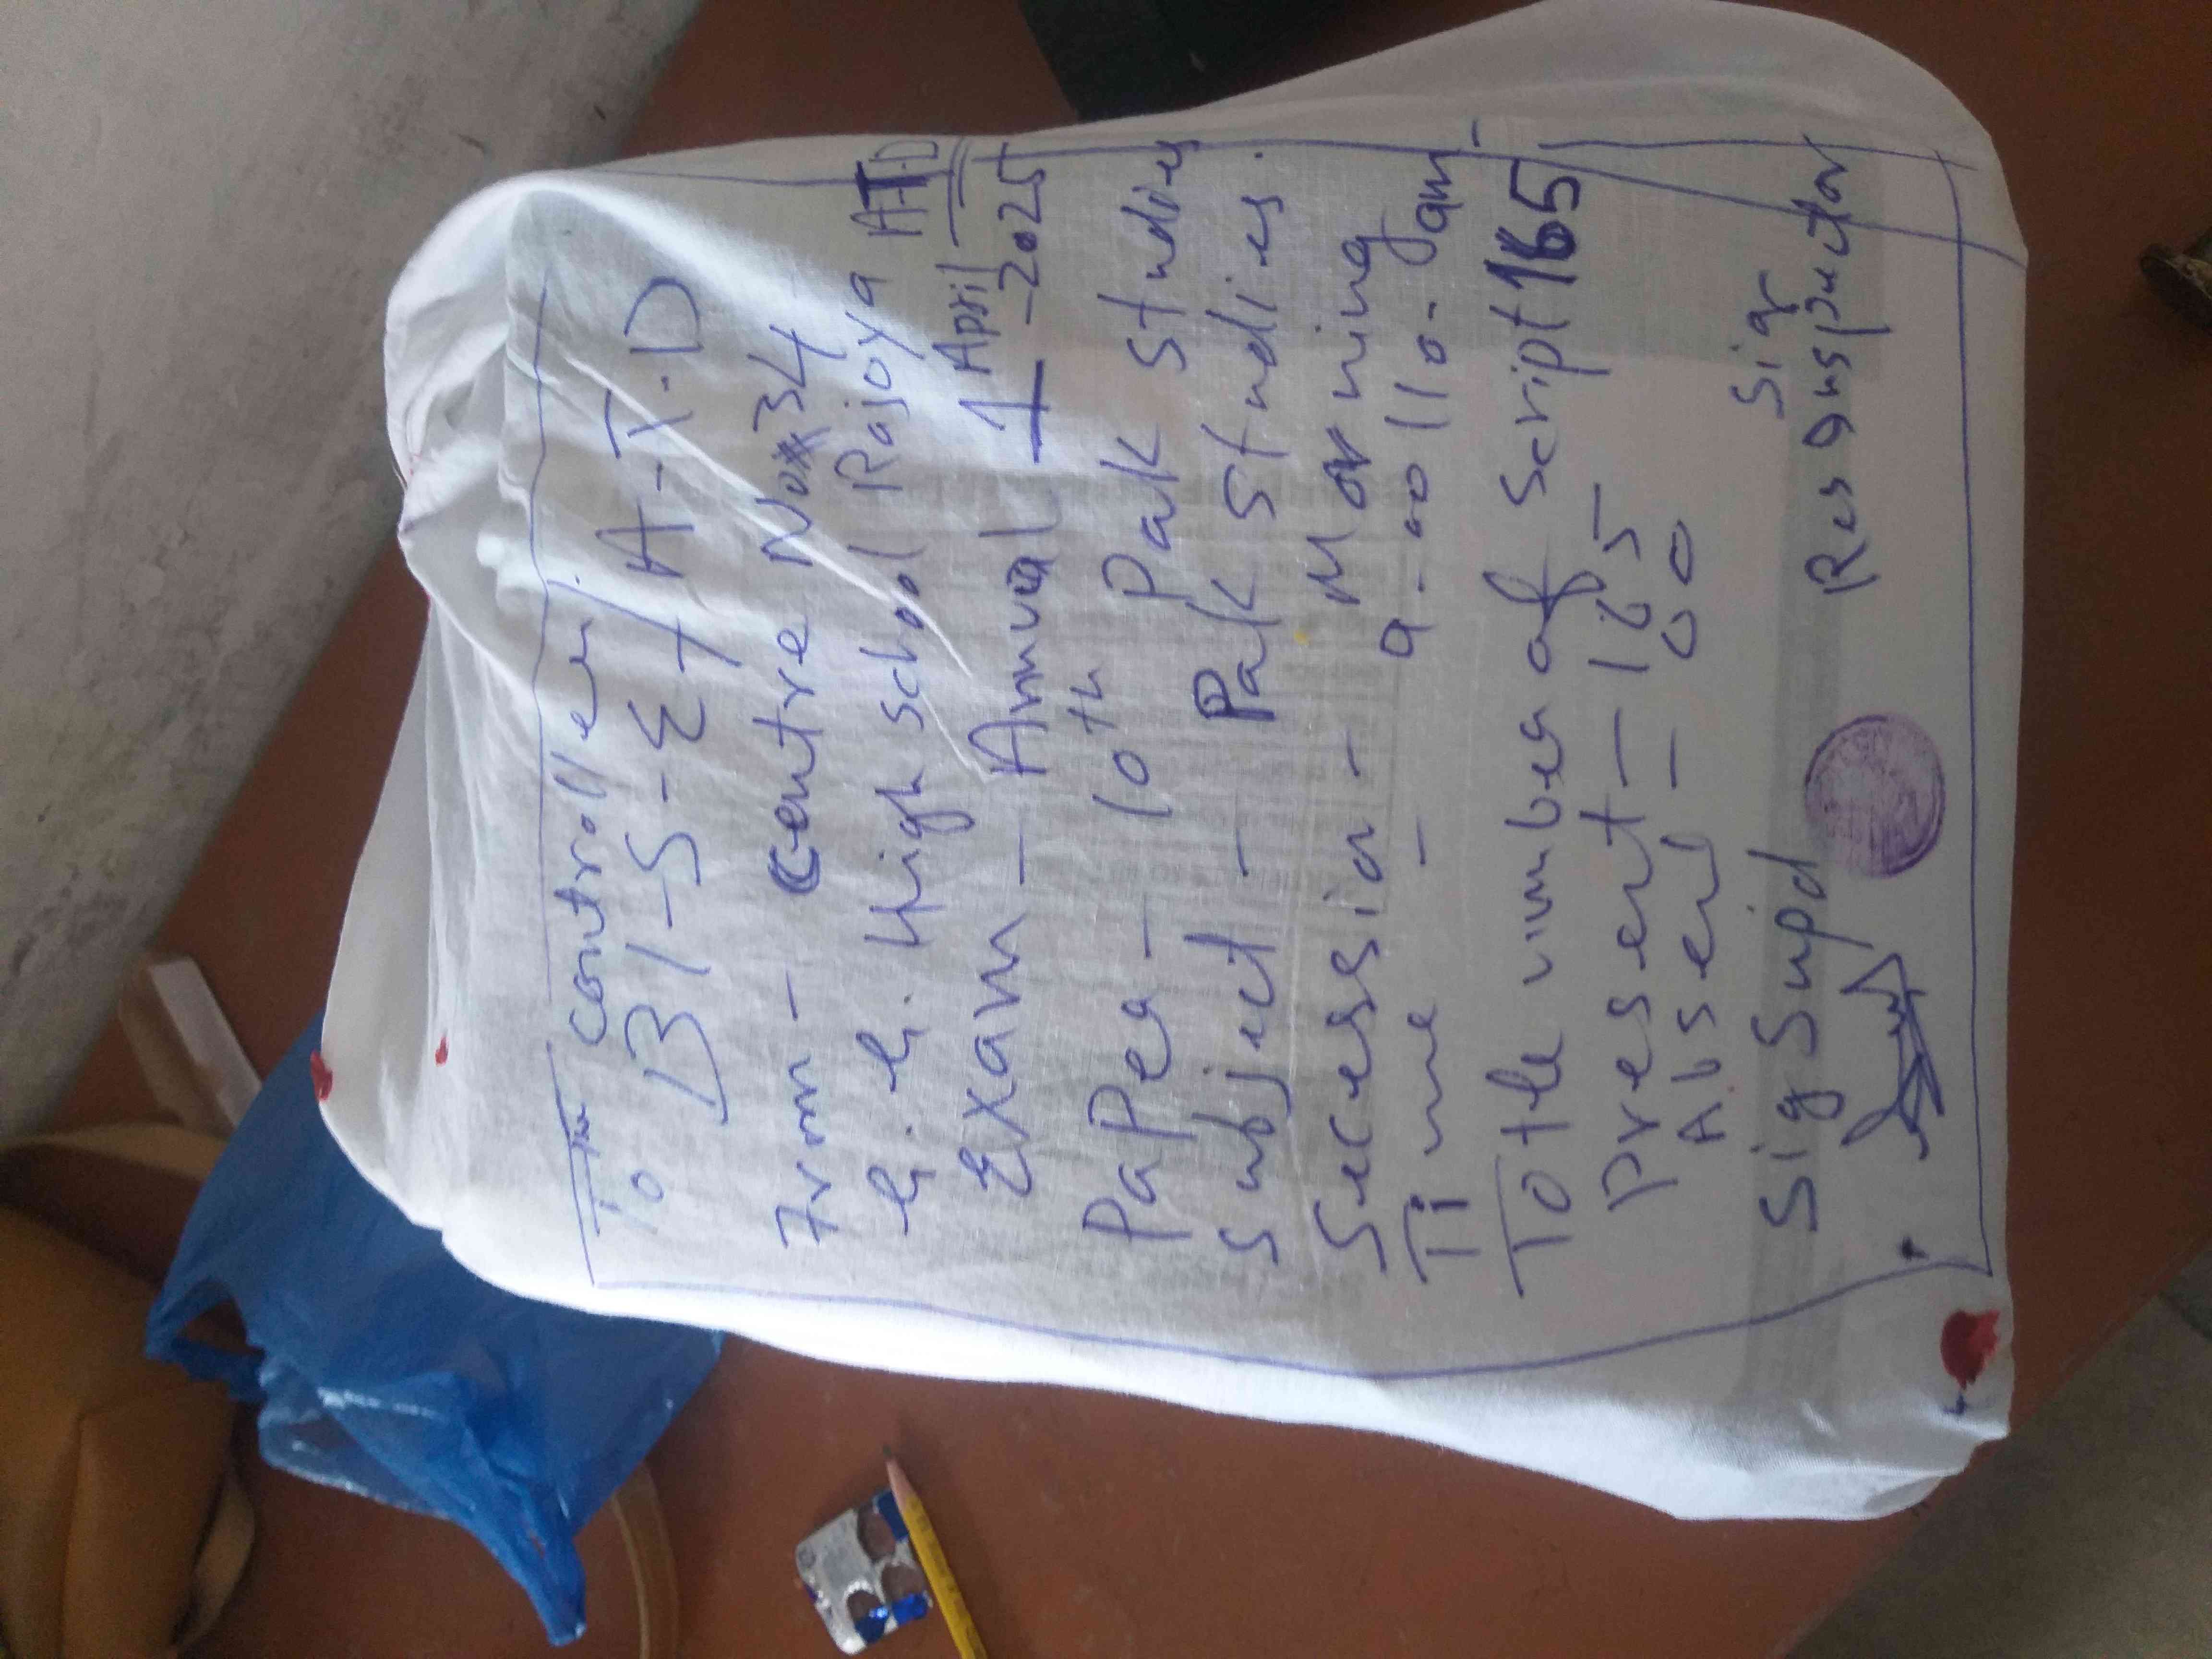 To The Controller
B-I-S-E / A-T-D
From - Centre No 34
G.G. High School Rajoya AT.D
Exam - Annual 1 April - 2025
PaPer - 10th Pak Studies
Subject - Pak Studies.
Secession - Morning
Time - 9-00 11 0- am -
Totle number of Script 165
Present - 165
Absent - 00
Sig Supd
Sig
Res Inspector